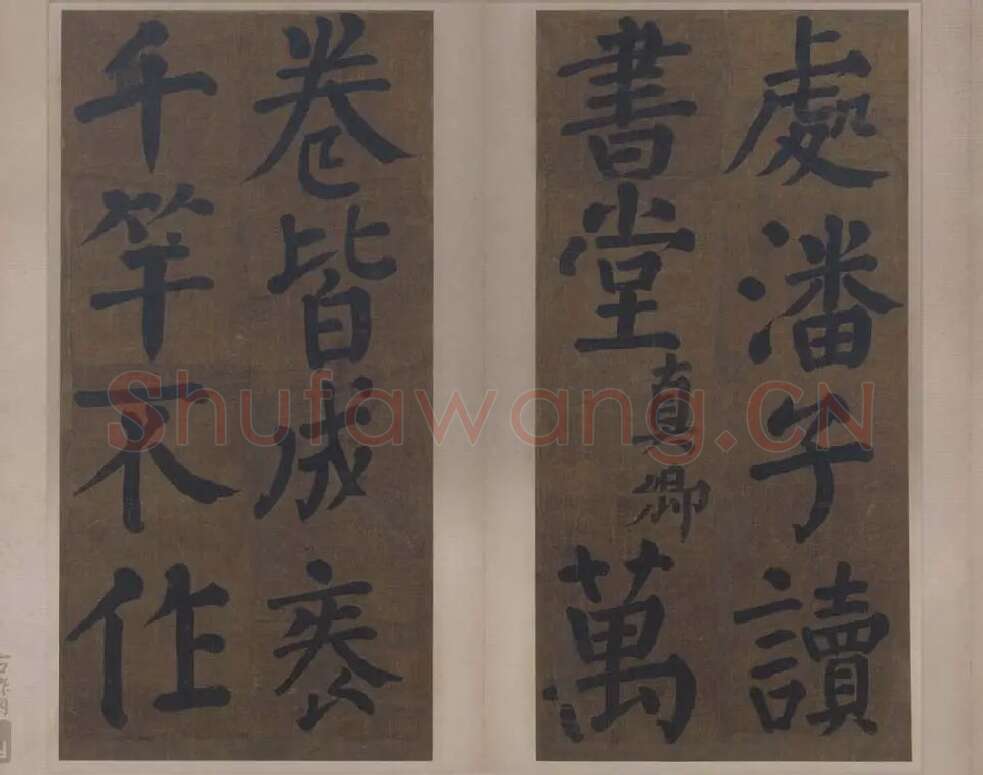 處潘子讀
書堂真卿萬
卷皆成袠
千竿不作
Shufawang.CN